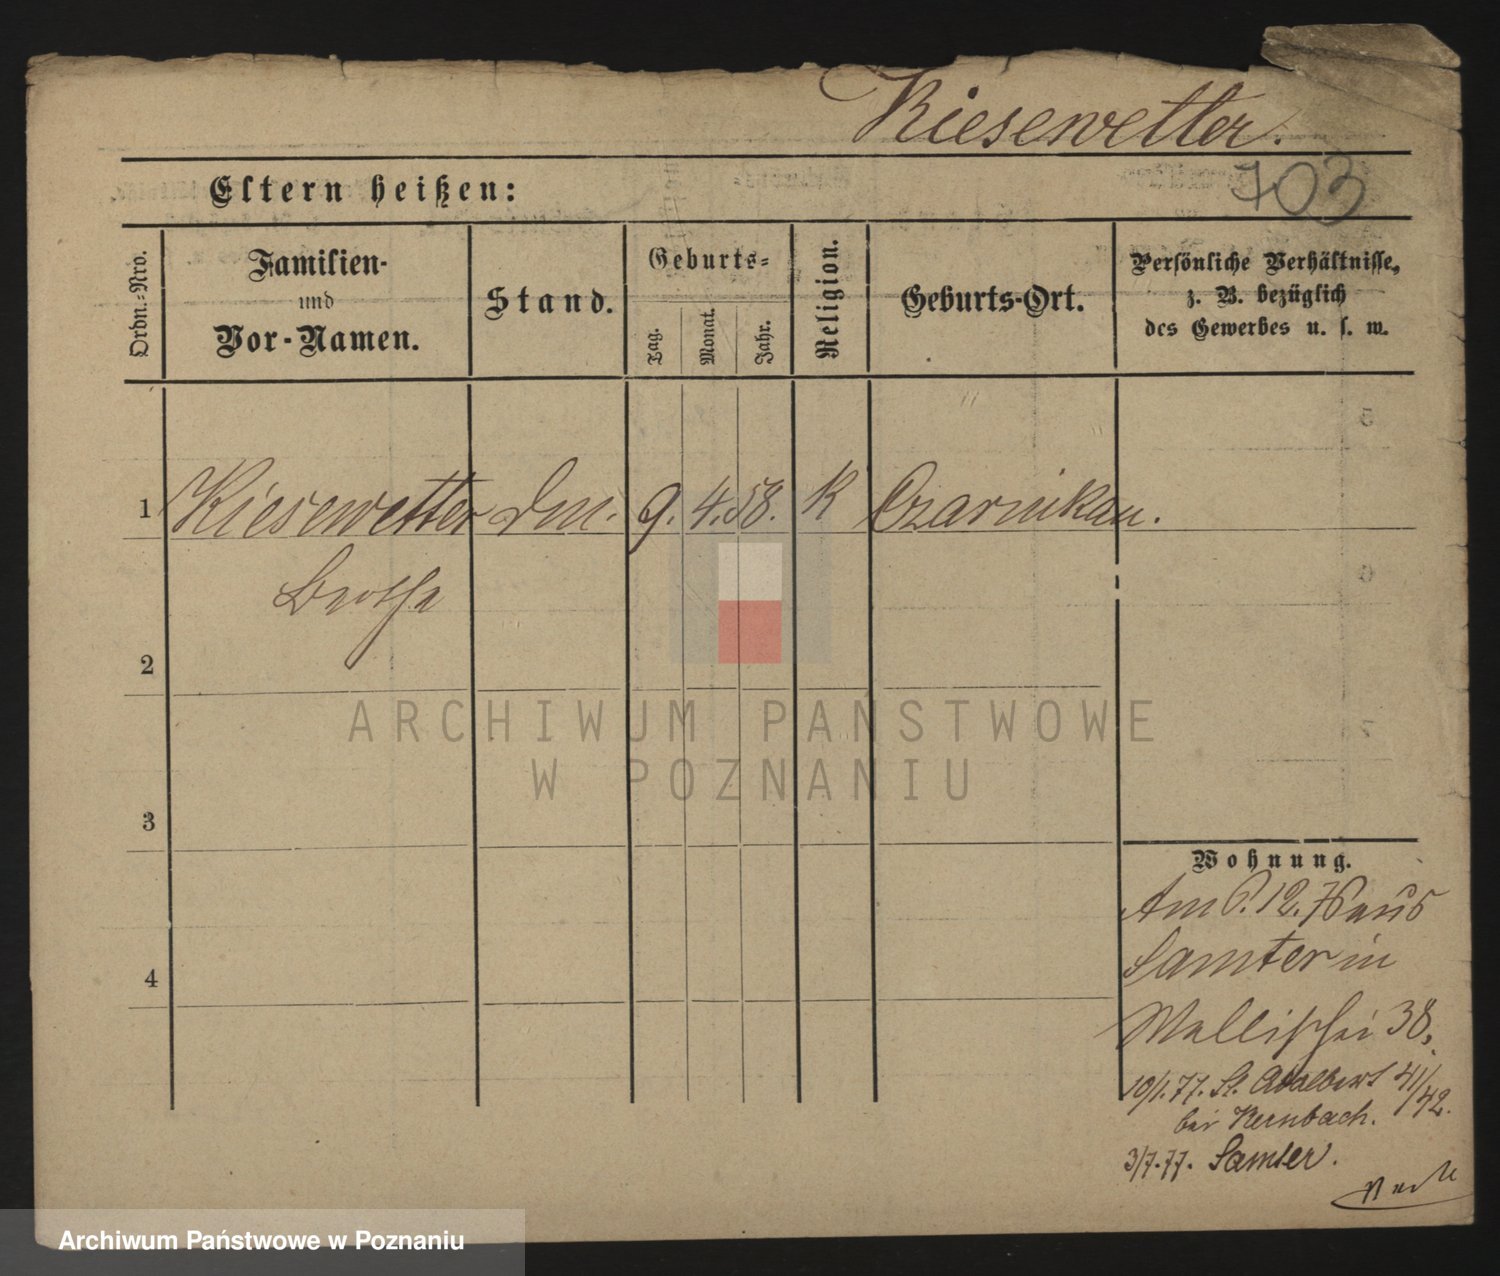 Kiesewetter.
703
Eltern heißen:
Ordn.=Nro.
Familien-
und
Vor-Namen.
Stand.
Geburts=
Tag.
Monat.
Jahr.
Religion.
Geburts-Ort.
Persönliche Verhältnisse,
z. B. bezüglich
des Gewerbes u. s. w.
1 Kiesewetter 9. 4. 58. K Czarnikau.
Bertha
2
3
4
Wohnung.
Am 6. 12. 76 aus
Samter in
Wallischei 38.
10/1. 77. St. Adalbert 41/42.
bei Kernbach.
3/7. 77. Samter.
ARCHIWUM PAŃSTWOWE
W POZNANIU
Archiwum Państwowe w Poznaniu